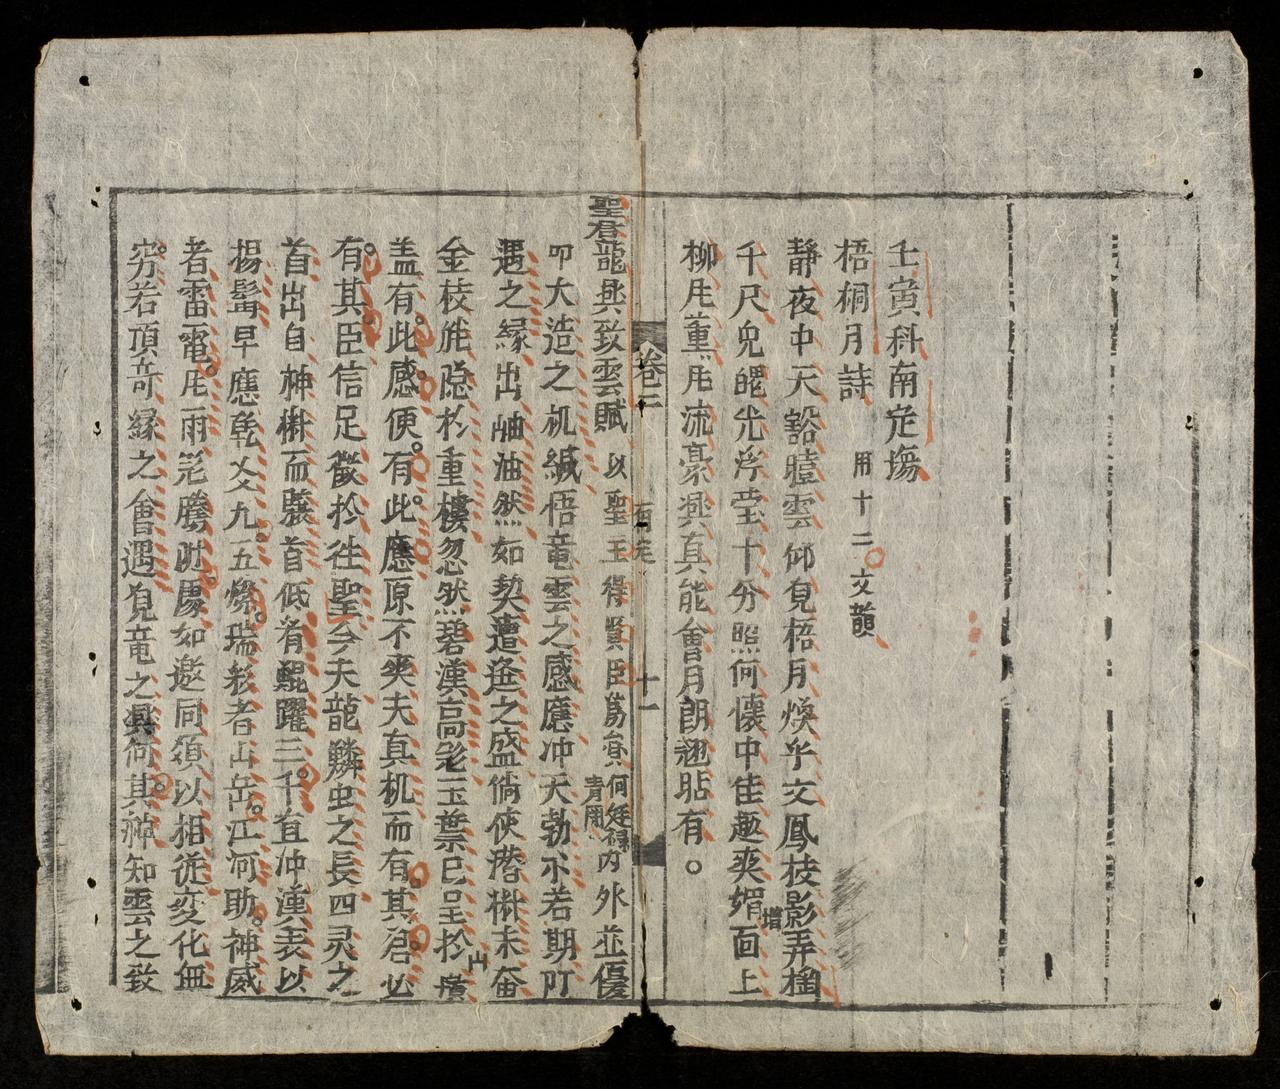 壬寅科南定塲
梧桐月詩 用十二文韻
静夜中天豁曀雲仰見梧月煥乎文鳳枝影弄楯
千尺兔魄光浮瑩十分照何懷中佳趣爽媚增面上
柳凭薫凭流豪興真能會月朗翘貼有。
卷二 南定 十一
聖君龍興致雲賦 以聖王得賢臣爲韻 何廷祿青岡 内外並優
叩大造之机緘悟竜雲之感應冲天勃尔若期叮
遇之緣出岫油然如契遭逢之盛倘使潛樹未奋
金枝能隐於重樓忽然碧漢高出玉葉已呈於
盖有此感便有此應原不爽夫真机而有其君必
有其臣信足徵於往聖今夫龍鱗虫之長四灵之
首出自神樹而驤首低看鯤躍三千直冲漢表以
揚髯早應乾爻九五燦瑞彩者山岳江河助神威
者雷電風雨騰附慶如邀同類以相從变化無
穷若頂奇緣之會遇見竜之興何其神知雲之致